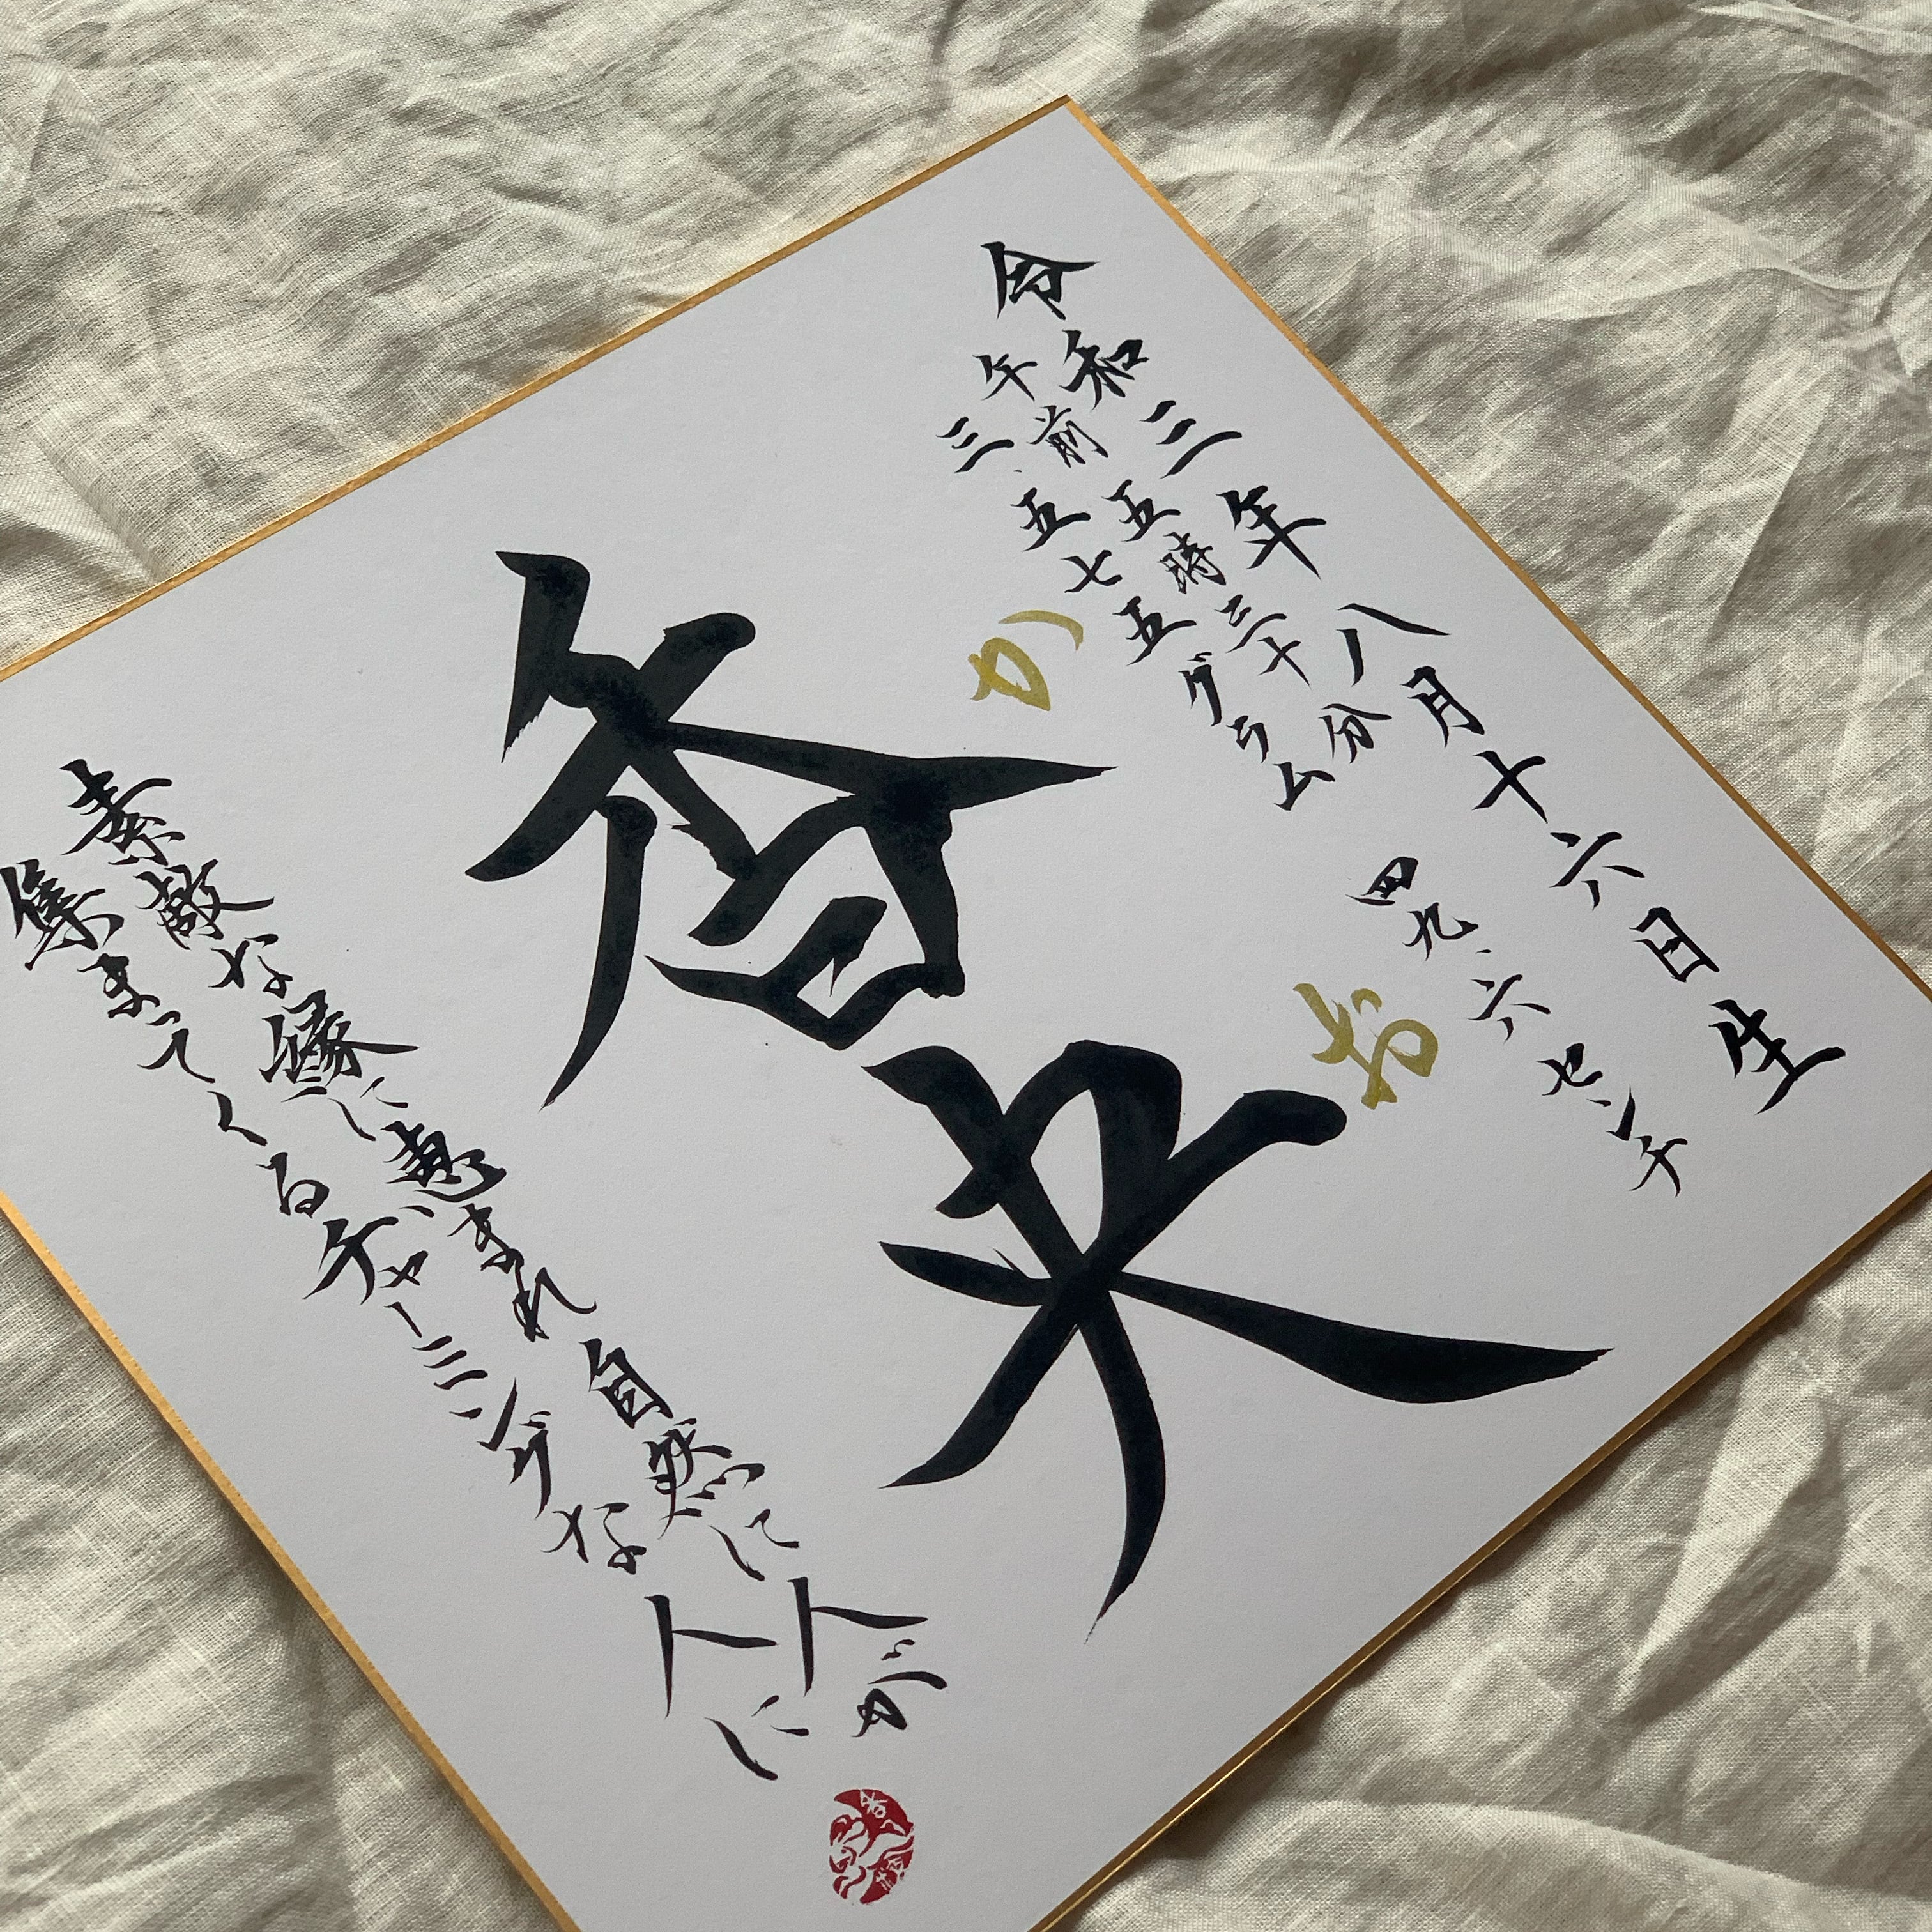 令和三年八月十六日生
午前五時三十分
三.五七五グラム 四九.六センチ
かお
香央
素敵な縁に恵まれ自然に人が
集まってくるチャーミングな人に